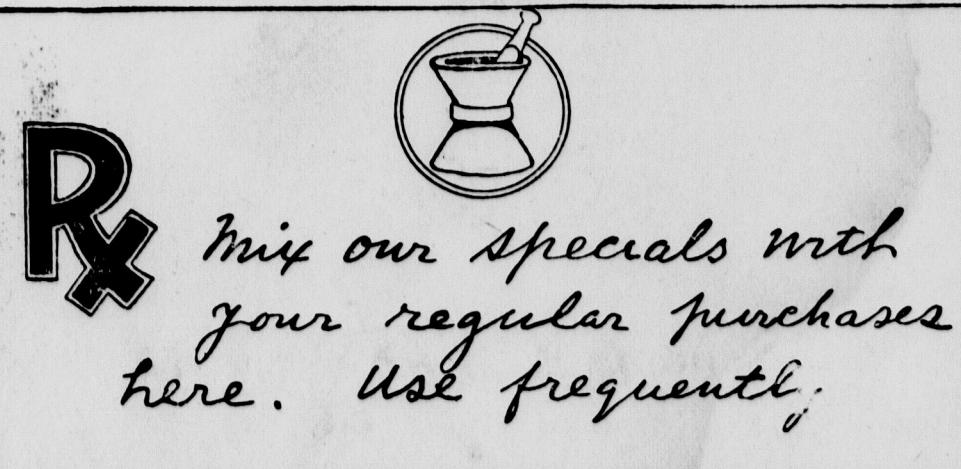 Rx
Mix our specials with
your regular purchases
here. Use frequently